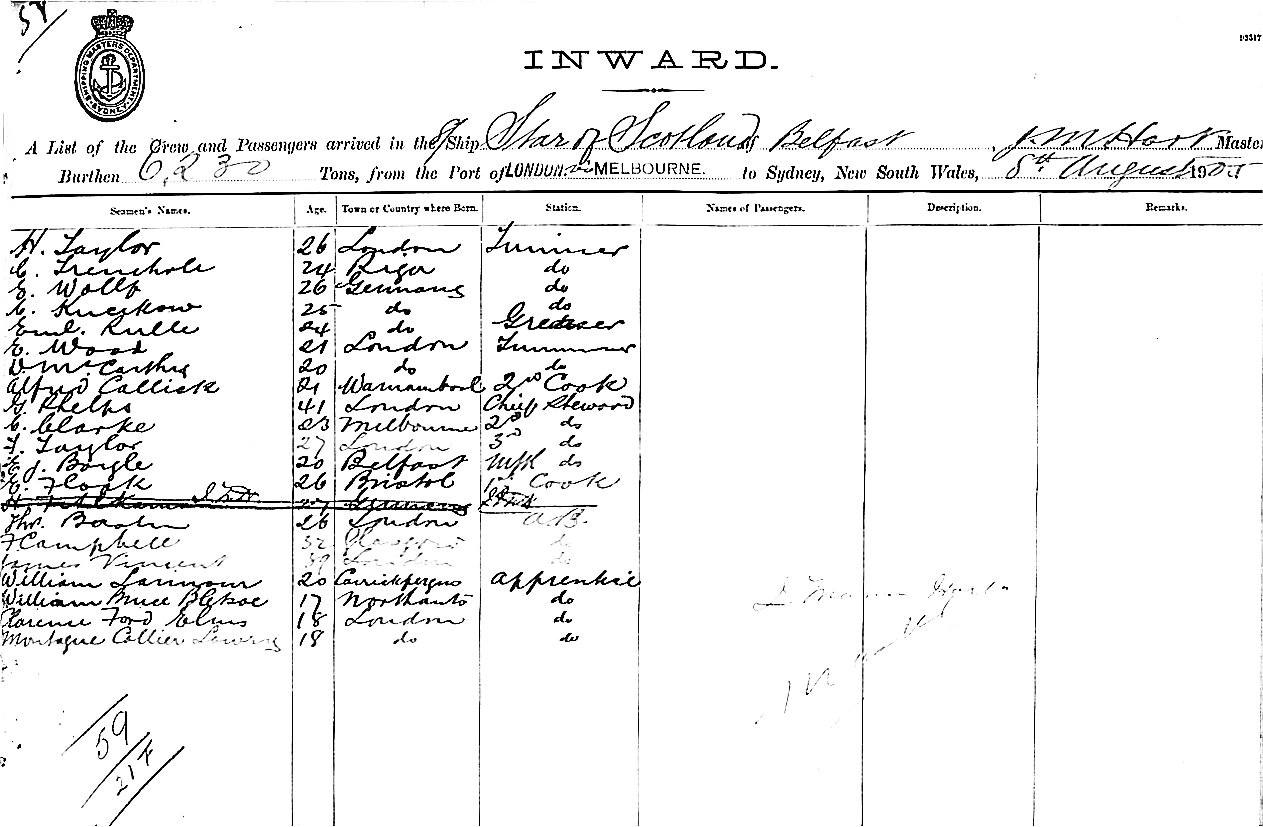 57
SHIPPING MASTERS DEPARTMENT SYDNEY
INWARD.
A List of the Crew and Passengers arrived in the S/Ship Star of Scotland of Belfast, Master
Burthen 6,230 Tons, from the Port of LONDON via MELBOURNE. to Sydney, New South Wales, 8th August 1905
Seamen's Names. Age. Town or Country where Born. Station. Names of Passengers. Description. Remarks.
H. Taylor 26 London Trimmer
C. 24 Riga do
E. Wolff 26 Germany do
25 do do
Emil. Rulle 24 do Greaser
E. Wood 21 London Trimmer
D. McCarthy 20 do do
Alfred Callick 21 Warnambool 2nd Cook
G. Phelps 41 London Chief Steward
C. Clarke 23 Melbourne 2nd do
Taylor 27 London 3rd do
E. J. Boyle 20 Belfast do
E. Flook 26 Bristol 1st Cook
27 Germany
Thos. 26 London A.B.
F Campbell 32 Glasgow do
James Vincent 39 London do
William Larmour 20 Carrickfergus apprentice
William Bruce 17 Northants do
Clarence Ford Elms 18 London do
Montague Collier 18 do do
59
21 F